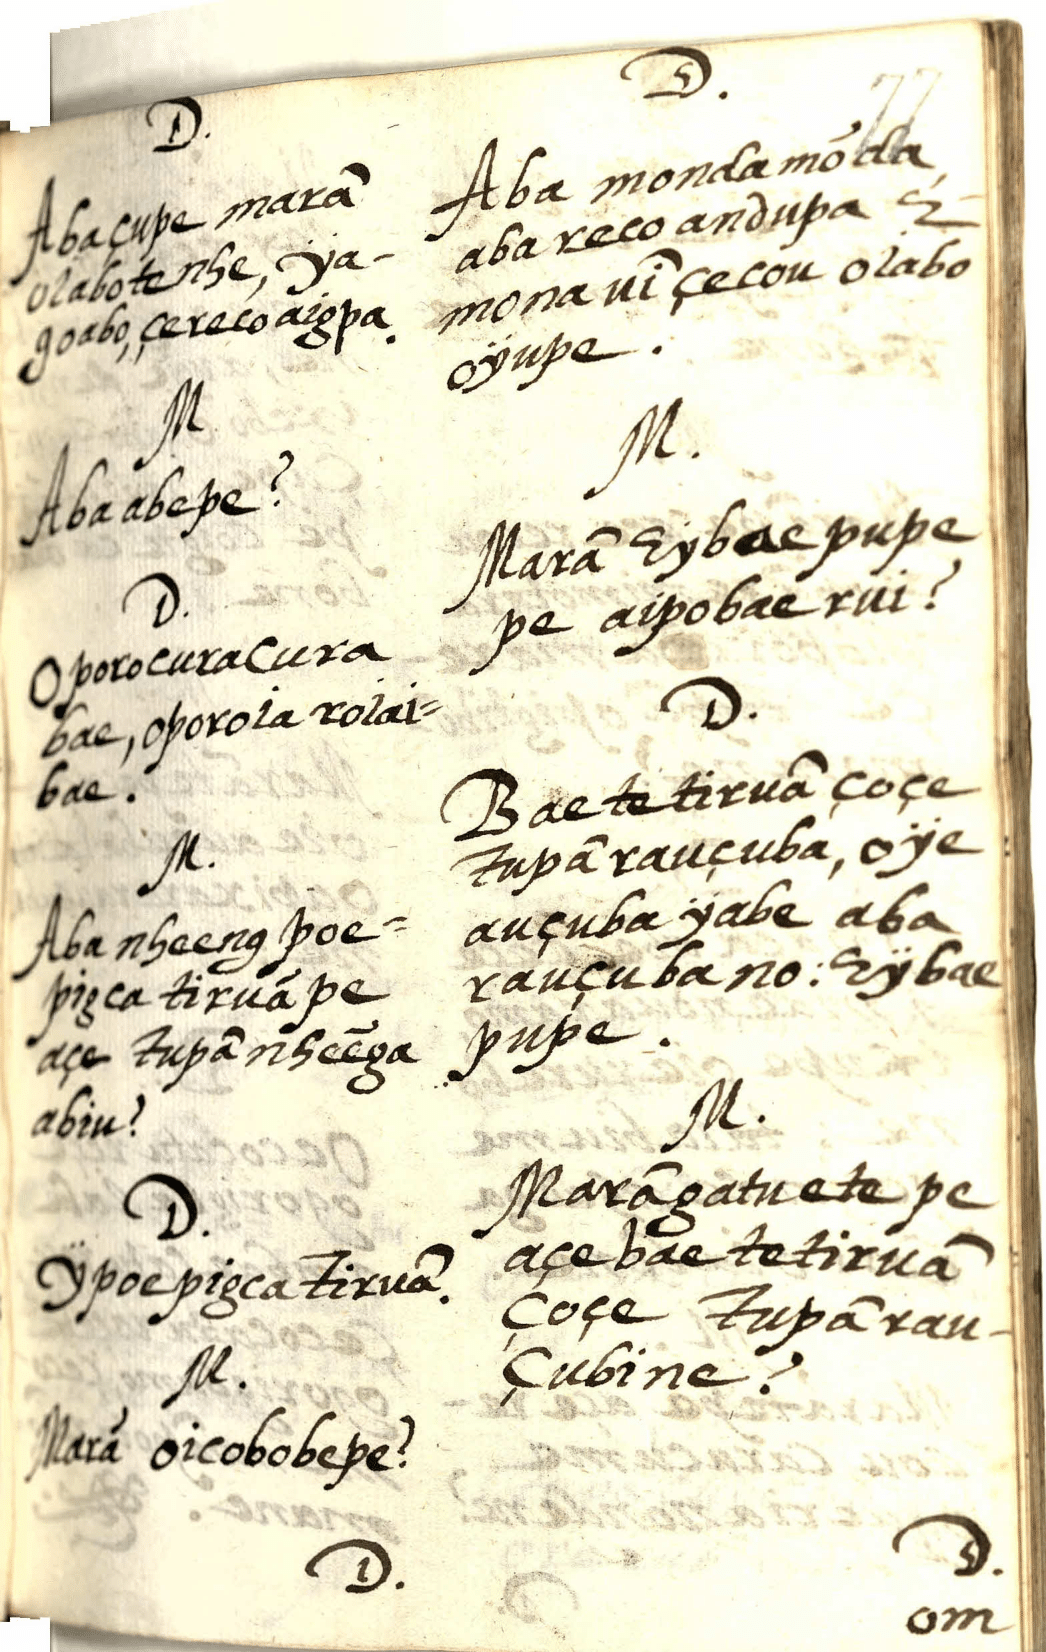 D.
Abaçupe marã
oiabotenhe, ÿya-
goabo, çerecoaigpa.
M
Aba abepe?
D.
Oporocuracura
bae, oporoia roiai=
bae.
M.
Aba nheeng poe=
pigca tiruã pe
açe tupã nheẽga
abiu?
D.
Ÿpoepigca tiruã.
M.
Marã oicobobepe?
D.
77
D.
Aba mondamõda,
aba reco andupa E
mona uĩ çecou oiabo
oÿupe.
M.
Marã Eybae pupe
pe aipobae rui?
D.
Bae te tiruã çoçe
tupã rauçuba, oÿe
auçuba ÿabe aba
rauçuba no: Eÿbae
pupe.
M.
Marãgatuete pe
açe bae te tiruã
çoçe tupã rau-
çubine?
D.
om